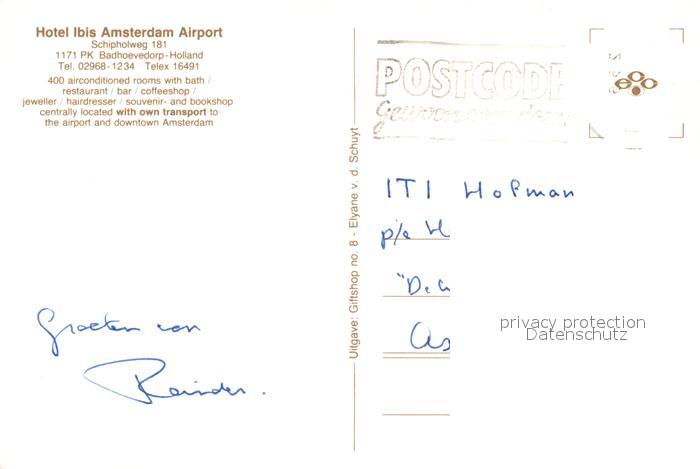 Hotel Ibis Amsterdam Airport
Schipholweg 181
1171 PK Badhoevedorp-Holland
Tel. 02968-1234 Telex 16491
400 airconditioned rooms with bath /
restaurant / bar / coffeeshop /
jeweller / hairdresser / souvenir- and bookshop
centrally located with own transport to
the airport and downtown Amsterdam
Groeten van
Reinder.
Uitgave: Giftshop no. 8 - Elyane v. d. Schuyt
POSTCODE
ITI Hofman
p/a H
"De
As
privacy protection
Datenschutz